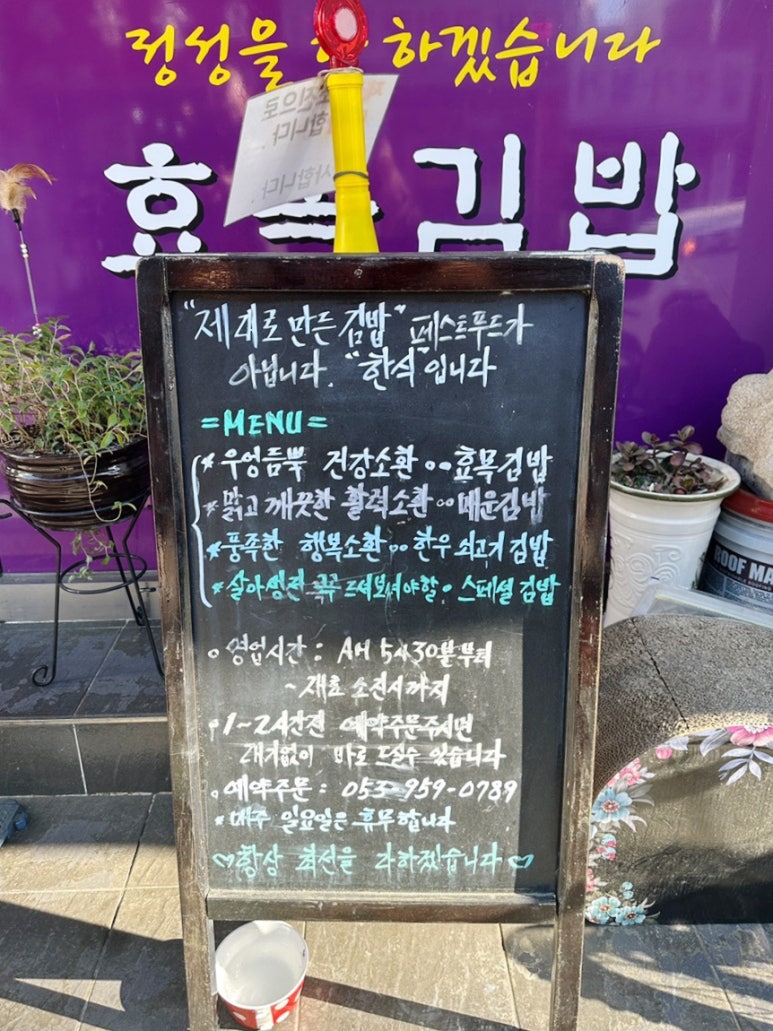 정성을 하겠습니다
효 김밥
"제대로 만든 김밥" 페스트푸드가
아닙니다. "한식"입니다
=MENU=
* 우엉듬뿍 건강소환 ㆍㆍ 효목김밥
* 맑고 깨끗한 활력소환 ㆍㆍ 매운김밥
* 풍족한 행복소환 ㆍㆍ 한우 쇠고기 김밥
* 살아생전 꼭 드셔보셔야할 ㆍ 스페셜 김밥
o 영업시간 : AM 5시30분부터
~ 재료 소진시까지
o 1~2시간전 예약주문주시면
대기없이 바로 드실수 있습니다
o 예약주문 : 053-959-0789
* 매주 일요일은 휴무합니다
♡항상 최선을 다하겠습니다♡
ROOF MA